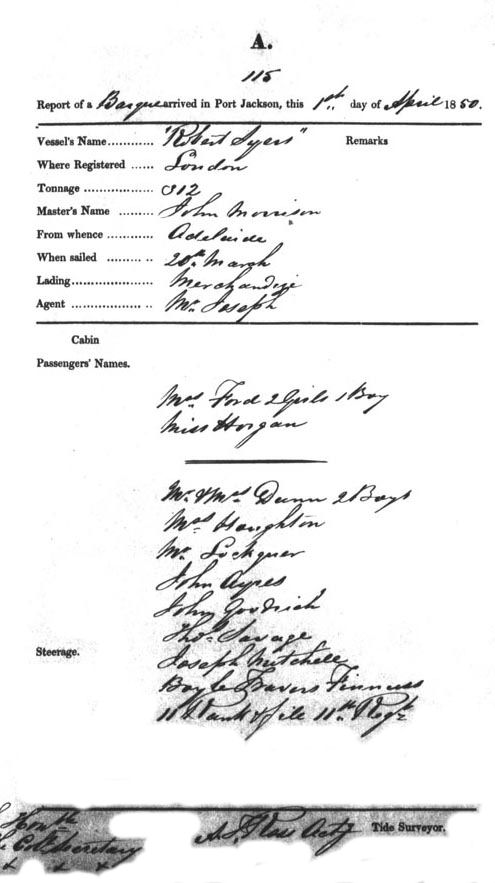 A.
115
Report of a Barque arrived in Port Jackson, this 1st day of April 1850.
Vessel's Name............ "Robert Syers" Remarks
Where Registered ...... London
Tonnage .................. 312
Master's Name ......... John Morrison
From whence ............ Adelaide
When sailed ......... .. 20th March
Lading..................... Merchandize
Agent ................... .. Mr. Joseph
Cabin
Passengers' Names.
Mrs Ford 2 Girls 1 Boy
Miss Horgan
Mr. & Mrs Dunn 2 Boys
Mrs Houghton
Mr. Lockyer
John Ayres
John Goodrich
Thos. Savage
Steerage.
Joseph Mitchell
Boyle Travers Finniss
11 Rank & file 11th Regt
Honble
Col Secretary
Actg Tide Surveyor.